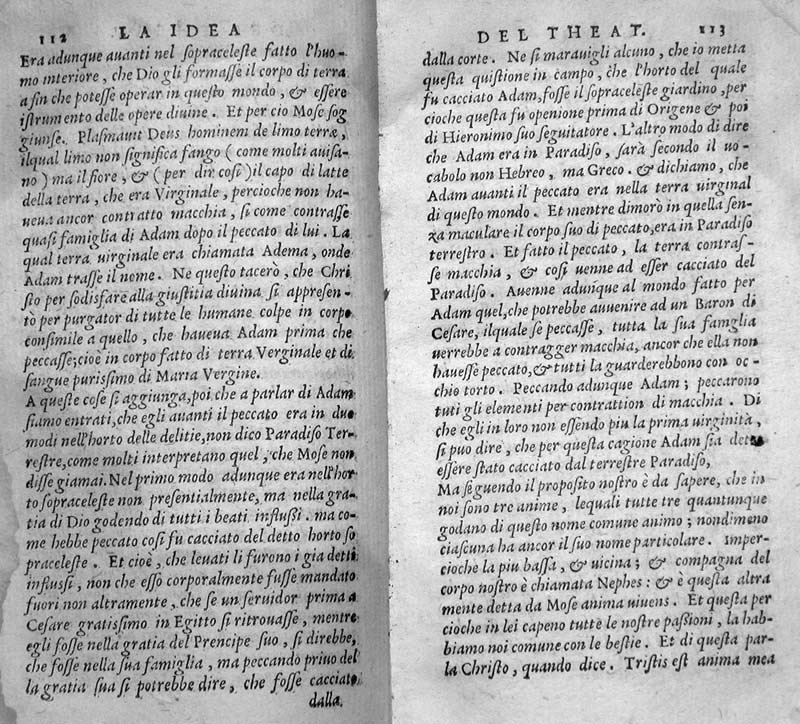 112 LA IDEA
Era adunque auanti nel sopraceleste fatto l'huo-
mo interiore, che Dio gli formasse il corpo di terra
a fin che potesse operar in questo mondo, & essere
istrumento delle opere diuine. Et per cio Mose sog
giunse. Plasmauit Deus hominem de limo terræ,
ilqual limo non significa fango (come molti auisa-
no) ma il fiore, & (per dir cosi) il capo di latte
della terra, che era Virginale, percioche non ha-
ueua ancor contratto macchia, si come contrasse
quasi famiglia di Adam dopo il peccato di lui. La
qual terra uirginale era chiamata Adema, onde
Adam trasse il nome. Ne questo tacerò, che Chri
sto per sodisfare alla giustitia diuina si appresen-
tò per purgator di tutte le humane colpe in corpo
consimile a quello, che haueua Adam prima che
peccasse; cioè in corpo fatto di terra Verginale et di
sangue purissimo di Maria Vergine.
A queste cose si aggiunga, poi che a parlar di Adam
siamo entrati, che egli auanti il peccato era in due
modi nell'horto delle delitie, non dico Paradiso Ter-
restre, come molti interpretano quel, che Mose non
disse giamai. Nel primo modo adunque era nell'hor
to sopraceleste non presentialmente, ma nella gra-
tia di Dio godendo di tutti i beati influssi. ma co-
me hebbe peccato cosi fu cacciato del detto horto so
praceleste. Et cioè, che leuati li furono i gia detti
influssi, non che esso corporalmente fusse mandato
fuori non altramente, che se un seruidor prima a
Cesare gratissimo in Egitto si ritrouasse, mentre
egli fosse nella gratia del Prencipe suo, si direbbe,
che fosse nella sua famiglia, ma peccando priuo del
la gratia sua si potrebbe dire, che fosse cacciato
dalla.
DEL THEAT. 113
dalla corte. Ne si marauigli alcuno, che io metta
questa quistione in campo, che l'horto del quale
fu cacciato Adam, fosse il sopraceleste giardino, per
cioche questa fu openione prima di Origene & poi
di Hieronimo suo seguitatore. L'altro modo di dire
che Adam era in Paradiso, sarà secondo il uo-
cabolo non Hebreo, ma Greco. & dichiamo, che
Adam auanti il peccato era nella terra uirginal
di questo mondo. Et mentre dimorò in quella sen-
za maculare il corpo suo di peccato, era in Paradiso
terrestro. Et fatto il peccato, la terra contras-
se macchia, & cosi uenne ad esser cacciato del
Paradiso. Auenne adunque al mondo fatto per
Adam quel, che potrebbe auuenire ad un Baron di
Cesare, ilquale se peccasse, tutta la sua famglia
uerrebbe a contragger macchia, ancor che ella non
hauesse peccato, & tutti la guarderebbono con oc-
chio torto. Peccando adunque Adam; peccarono
tuti gli elementi per contrattion di macchia. Di
che egli in loro non essendo piu la prima uirginità,
si puo dire, che per questa cagione Adam sia detto
essere stato cacciato dal terrestre Paradiso,
Ma seguendo il proposito nostro è da sapere, che in
noi sono tre anime, lequali tutte tre quantunque
godano di questo nome comune animo; nondimeno
ciascuna ha ancor il suo nome particolare. Imper-
cioche la piu bassa, & uicina; & compagna del
corpo nostro è chiamata Nephes: & è questa altra
mente detta da Mose anima uiuens. Et questa per
cioche in lei capeno tutte le nostre passioni, la hab-
biamo noi comune con le bestie. Et di questa par-
la Christo, quando dice. Tristis est anima mea